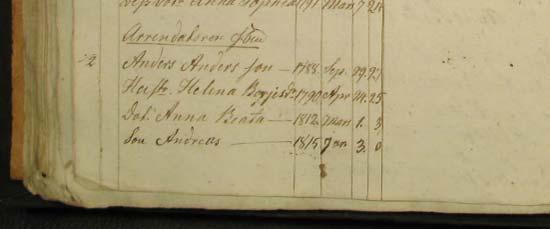 Anna Sophia 1791 Mars 7 24
Arrendatoren
2 Anders Anders son — 1788. Sep. 29. 27
Hust. Helena 1790 Apr 24. 25
Dot. Anna Beata — 1812. Mars 1. 3
Son Andreas — 1815 Jan 3. 0